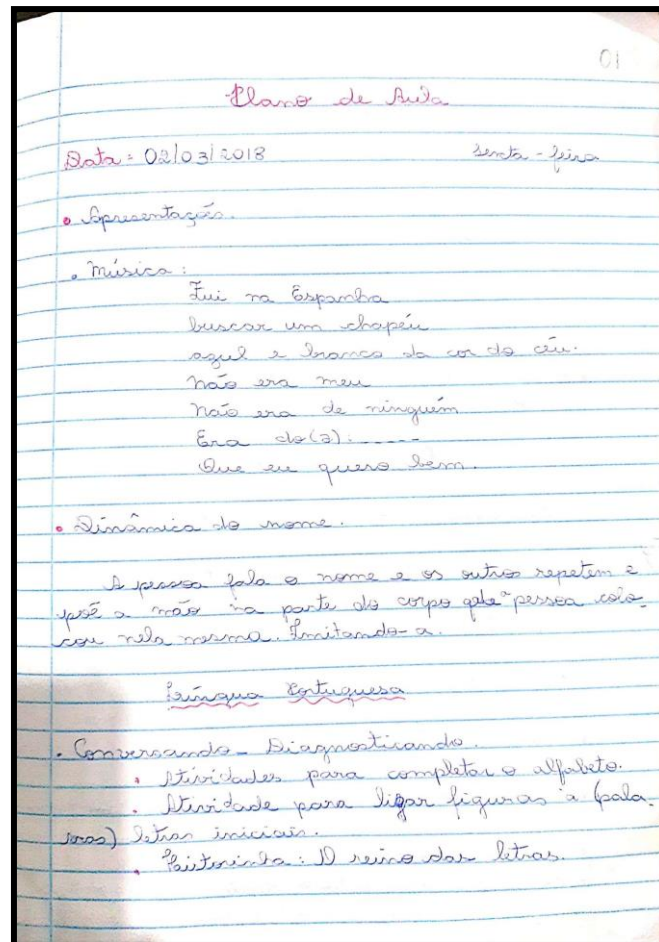 01
Plano de Aula
Data = 02/03/2018 sexta-feira
• Apresentação.
• Música:
Fui na Espanha
buscar um chapéu
azul e branco da cor do céu.
Não era meu
Não era de ninguém
Era do(a):-----
Que eu quero bem.
• Dinâmica do nome.
A pessoa fala o nome e os outros repetem e
põe a mão na parte do corpo que a pessoa colo-
cou nela mesma. Imitando-a.
Língua Portuguesa
• Conversando - Diagnosticando.
• Atividades para completar o alfabeto.
• Atividade para ligar figuras a (pala-
vras) letras iniciais.
• Leitorinha: O reino das letras.